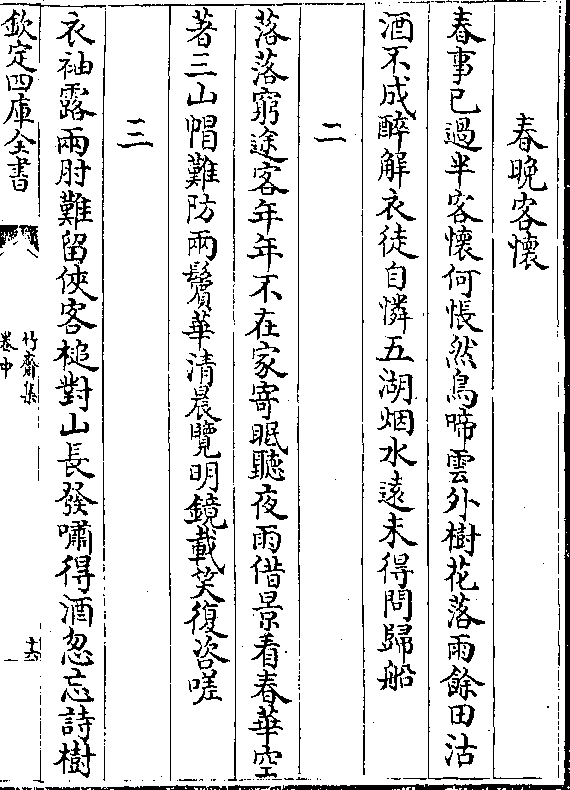 春晚客懷
春事已過半客懷何悵然鳥啼雲外樹花落雨餘田沽
酒不成醉解衣徒自憐五湖烟水遠未得問歸船
二
落落窮途客年年不在家寄眠聽夜雨借景看春華空
著三山帽難防兩鬢華清晨覽明鏡載笑復咨嗟
三
衣袖露兩肘難留俠客槌對山長發嘯得酒忽忘詩樹
欽定四庫全書
竹齋集
卷中
十六